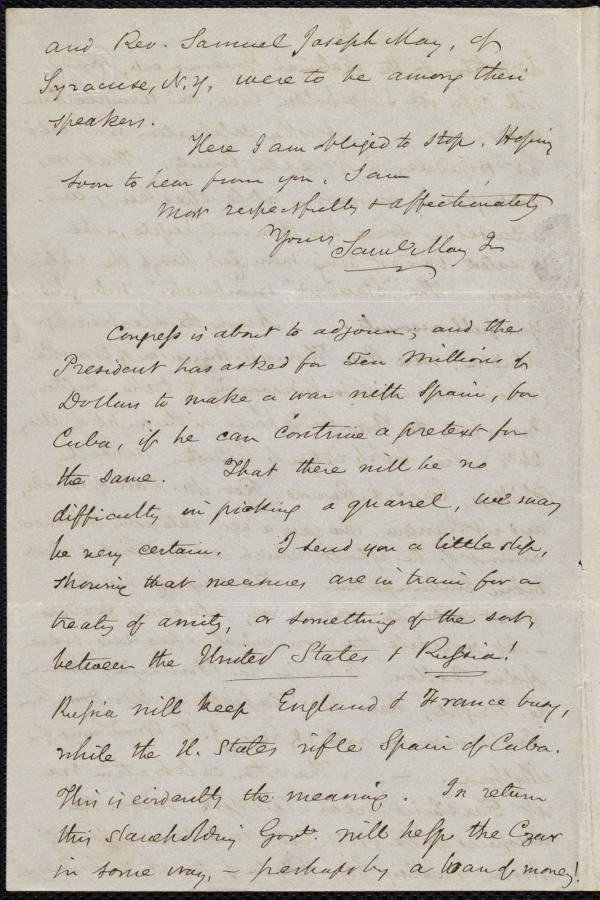 and Rev. Samuel Joseph May, of
Syracuse, N.Y., were to be among their
speakers.
Here I am obliged to stop. Hoping
soon to hear from you, I am
Most respectfully & affectionately
Yours Saml. May Jr
Congress is about to adjourn; and the
President has asked for Ten Millions of
Dollars to make a war with Spain, for
Cuba, if he can contrive a pretext for
the same. That there will be no
difficulty in picking a quarrel, we may
be very certain. I send you a little slip,
showing that measures are in train for a
treaty of amity, or something of the sort,
between the United States & Russia!
Russia will keep England & France busy,
while the U. States rifle Spain of Cuba.
This is evidently the meaning. In return
this slaveholding Govt. will help the Czar
in some way, – perhaps by a loan of money!